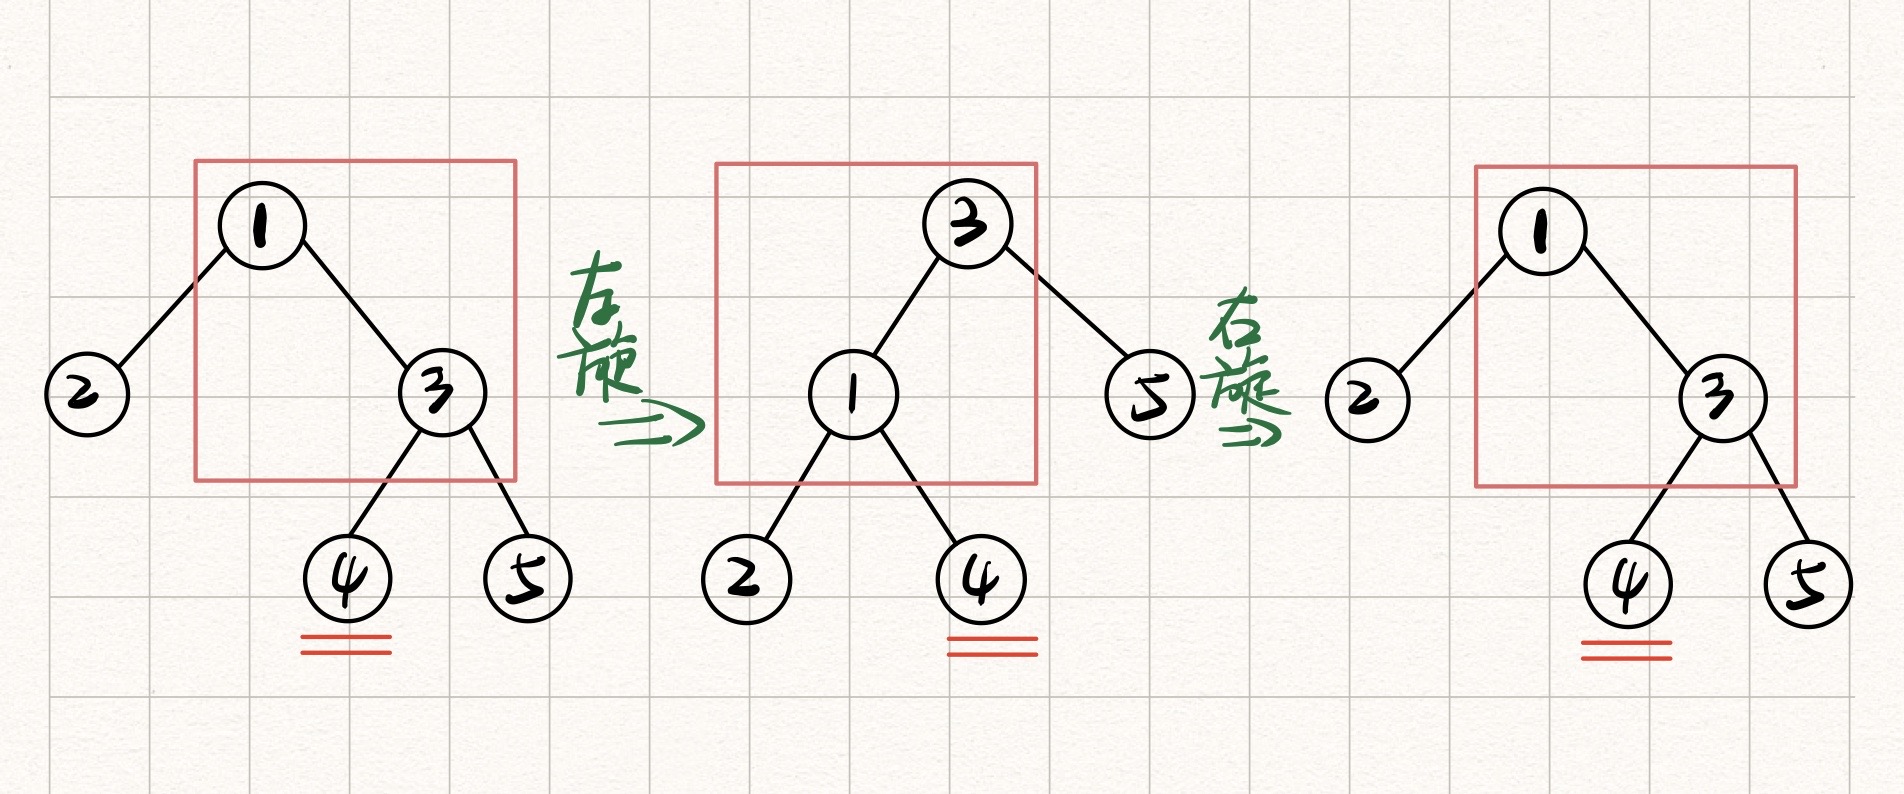 1
2
3
4
5
左旋
3
1
5
2
4
右旋
1
2
3
4
5